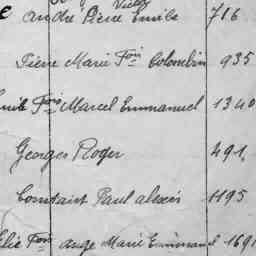 André Pierre Emile 716
Pierre Marie Fois Colombin 935
Fois Marcel Emmanuel 1340
Georges Roger 491
Constant Paul alexis 1195
Fois ange Marie Emmanuel 169